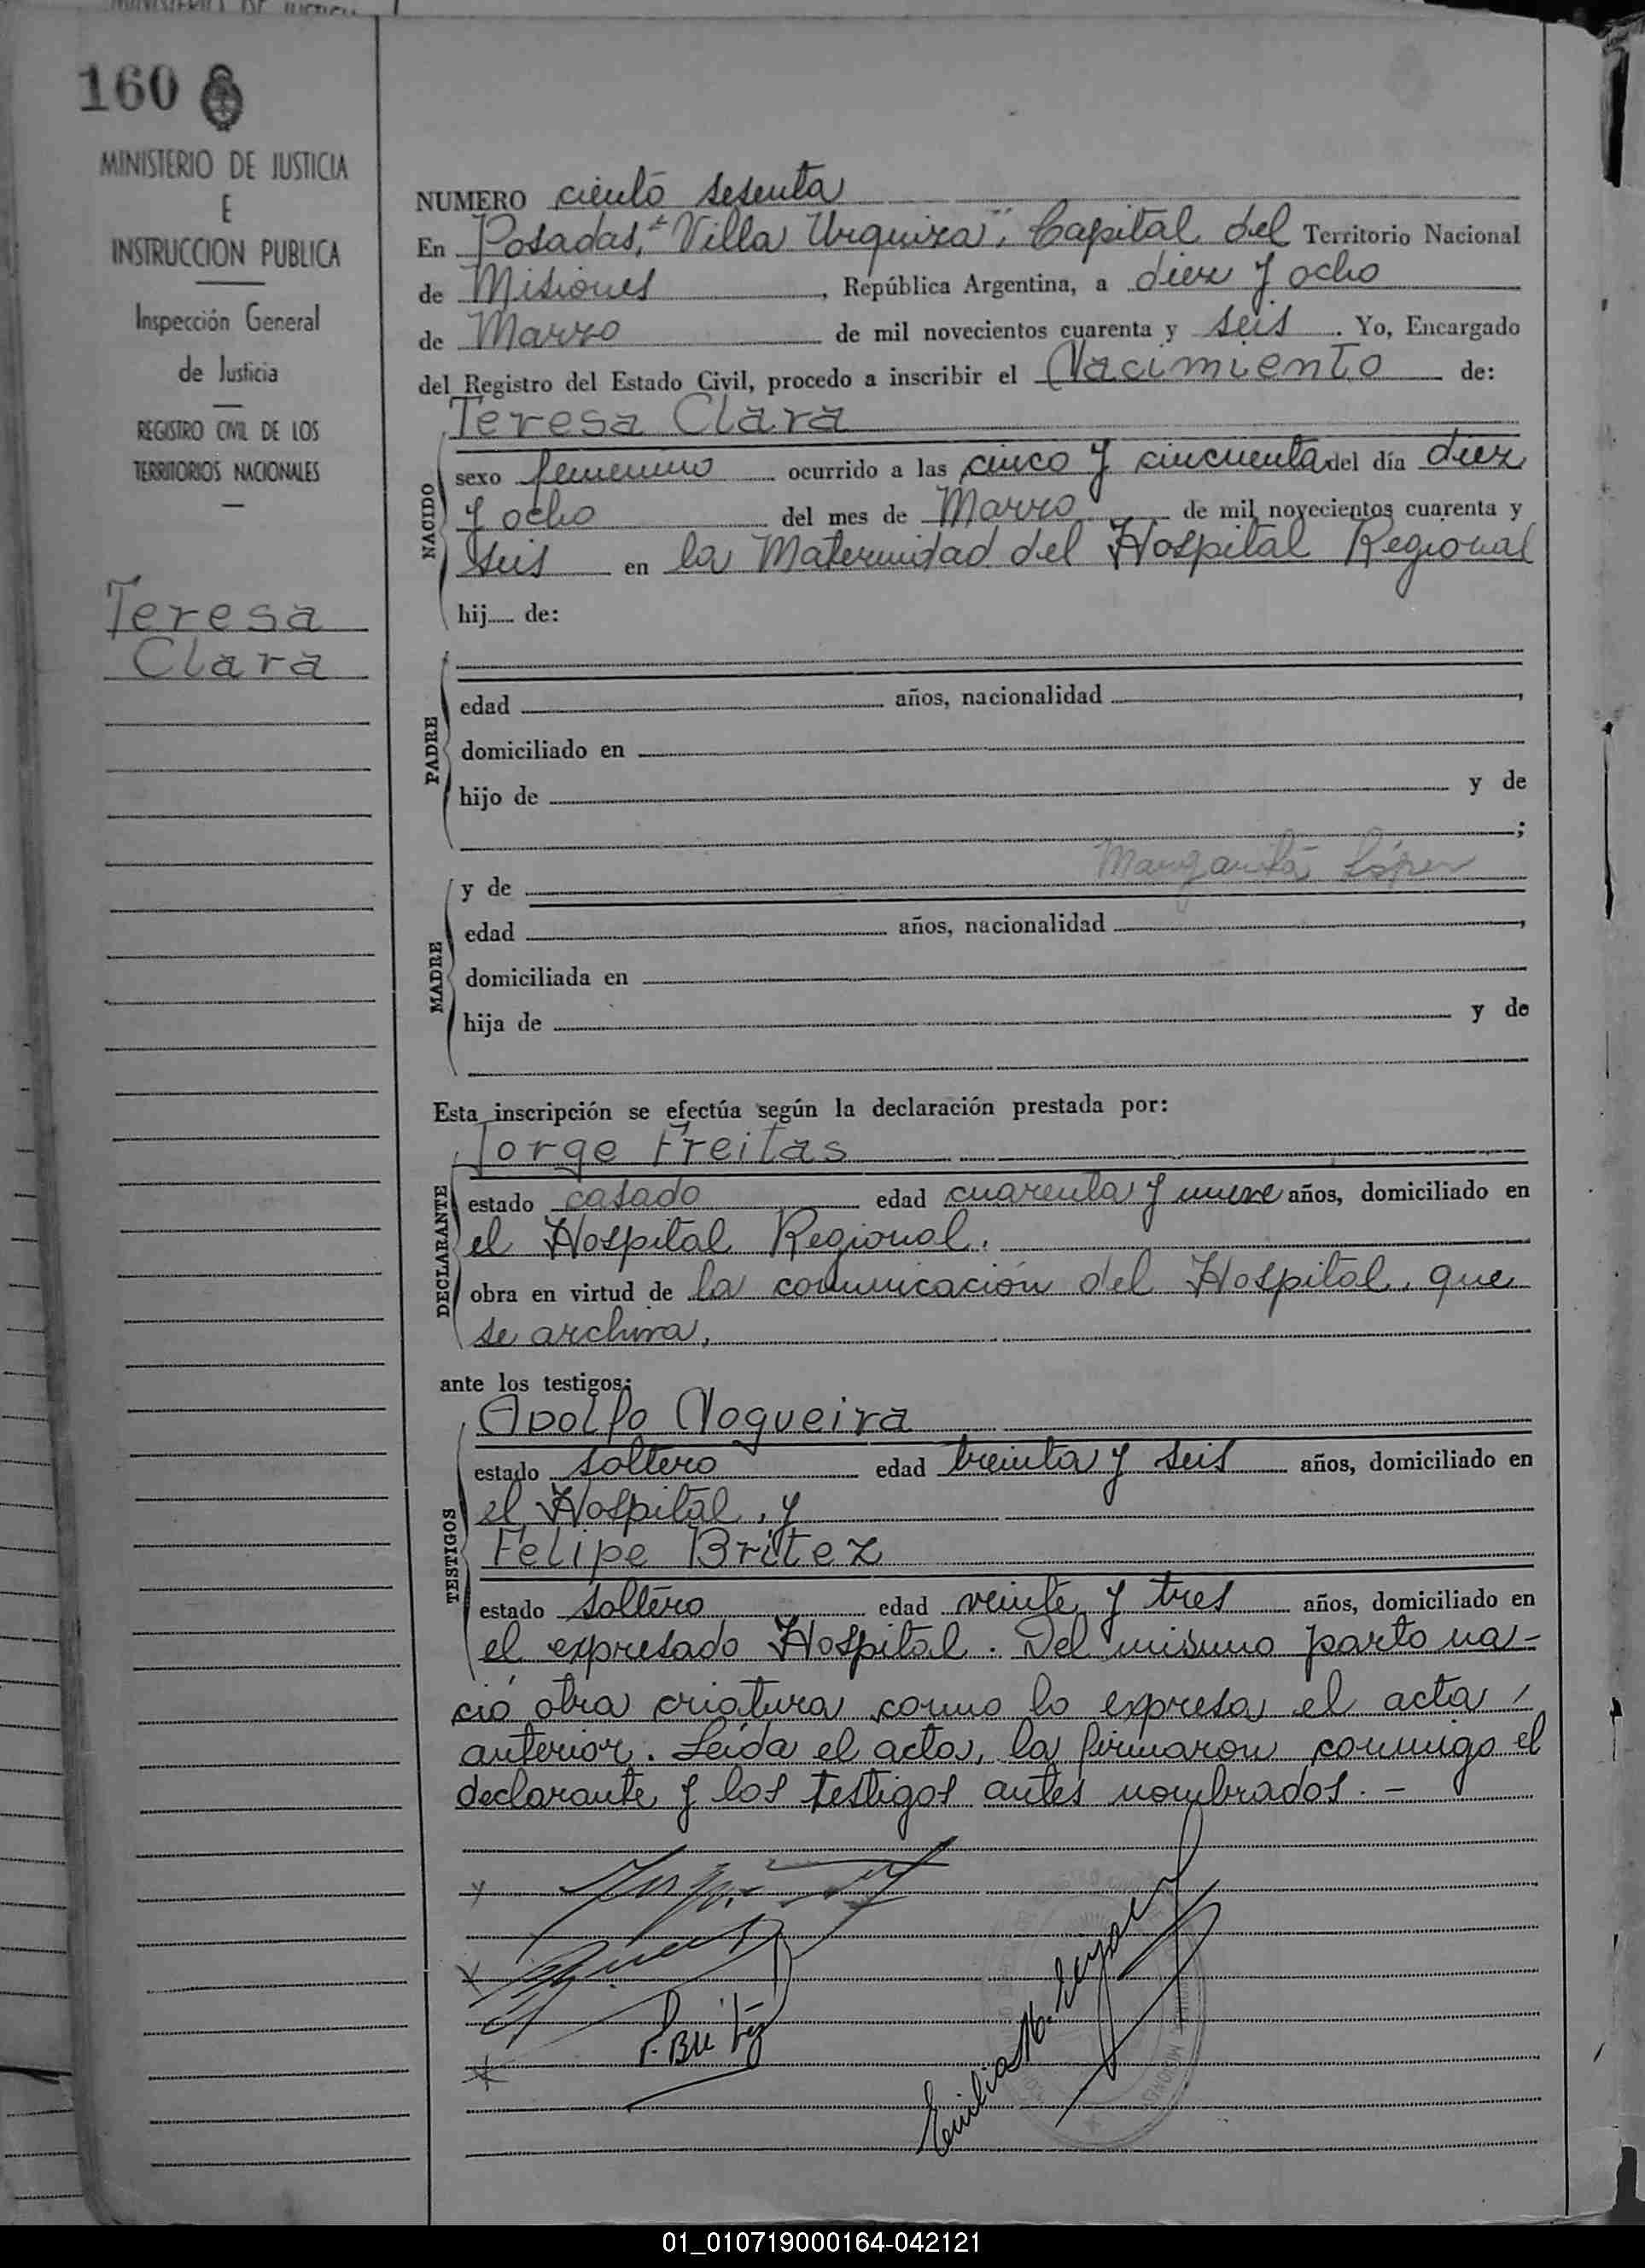 MINISTERIO DE JUSTICIA
160
MINISTERIO DE JUSTICIA
E
INSTRUCCION PUBLICA
Inspección General
de Justicia
REGISTRO CIVIL DE LOS
TERRITORIOS NACIONALES
Teresa
Clara
NUMERO ciento sesenta
En Posadas, "Villa Urquiza", Capital del Territorio Nacional
de Misiones, República Argentina, a diez y ocho
de Marzo de mil novecientos cuarenta y seis. Yo, Encargado
del Registro del Estado Civil, procedo a inscribir el Nacimiento de:
NACIDO
Teresa Clara
sexo femenino ocurrido a las cinco y cincuenta del día diez
y ocho del mes de Marzo de mil novecientos cuarenta y
seis en la Maternidad del Hospital Regional
hij..... de:
PADRE
edad años, nacionalidad ,
domiciliado en
hijo de y de
;
Margarita López
MADRE
y de
edad años, nacionalidad ,
domiciliada en
hija de y de
Esta inscripción se efectúa según la declaración prestada por:
DECLARANTE
Jorge Freitas
estado casado edad cuarenta y nueve años, domiciliado en
el Hospital Regional.
obra en virtud de la comunicación del Hospital, que
se archiva,
ante los testigos:
TESTIGOS
Adolfo Nogueira
estado soltero edad treinta y seis años, domiciliado en
el Hospital, y
Felipe Britez
estado soltero edad veinte y tres años, domiciliado en
el expresado Hospital. Del mismo parto na-
ció otra criatura como lo expresa el acta
anterior. Leída el acta, la firmaron conmigo el
declarante y los testigos antes nombrados. -
F. Britez
Emilia M.
MISIONES
01_010719000164-042121